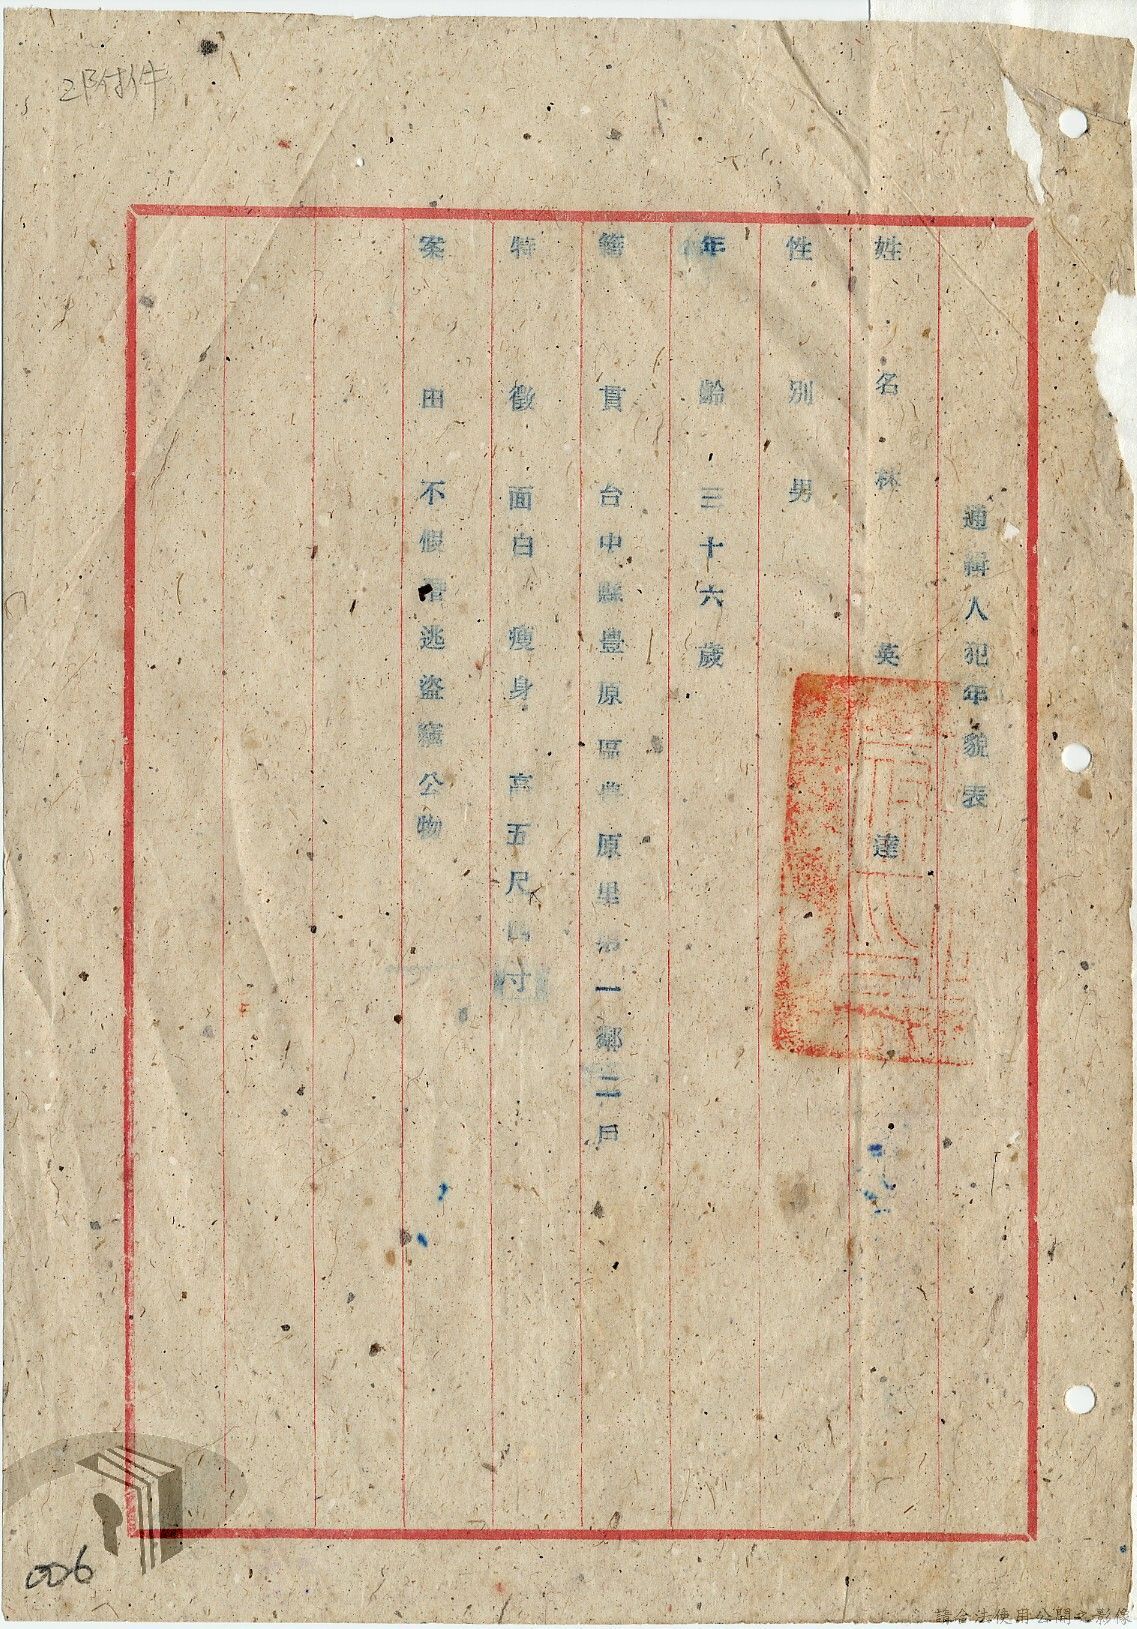 附件
通緝人犯年貌表
姓名 林英達
性別 男
年齡 三十六歲
籍貫 台中縣豊原區豊原里第一鄰二戶
特徵 面白 瘦身 高五尺四寸
案由 不假潛逃盜竊公物
006
請合法使用公開之影像